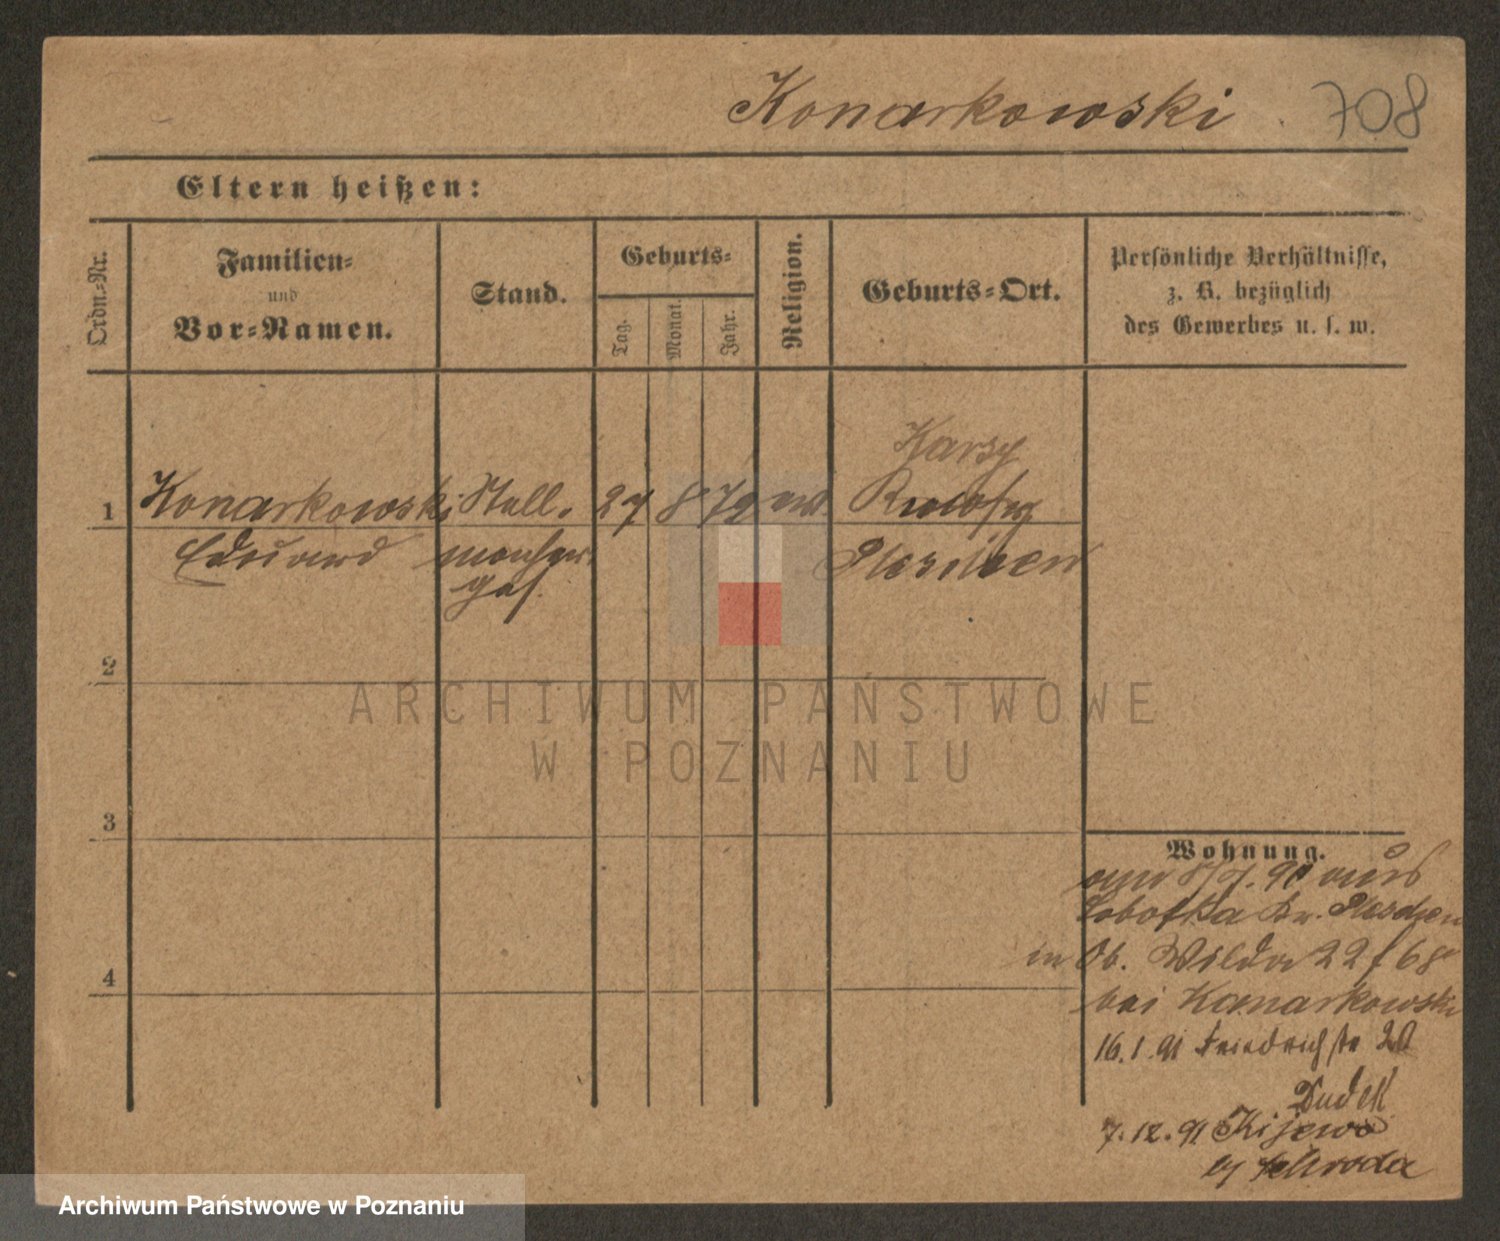 Konarkowski
708
Eltern heißen:
Ordn.-Nr.
Familien-
und
Vor-Namen.
Stand.
Geburts-
Tag.
Monat.
Jahr.
Religion.
Geburts-Ort.
Persönliche Verhältnisse,
z. B. bezüglich
des Gewerbes u. s. w.
Karsy
1 Konarkowski Stell. 27 8 72
Eduard
ges.
Pleschen
2
ARCHIWUM PAŃSTWOWE
W POZNANIU
3
Wohnung.
90 aus
Sobotka Kr. Pleschen
in Ob. Wilda 22
bei Kanarkowski
4
16.1.91 Friedrichstr 20
Dudek
7.12.91 Kijewo
b/ Schroda
Archiwum Państwowe w Poznaniu